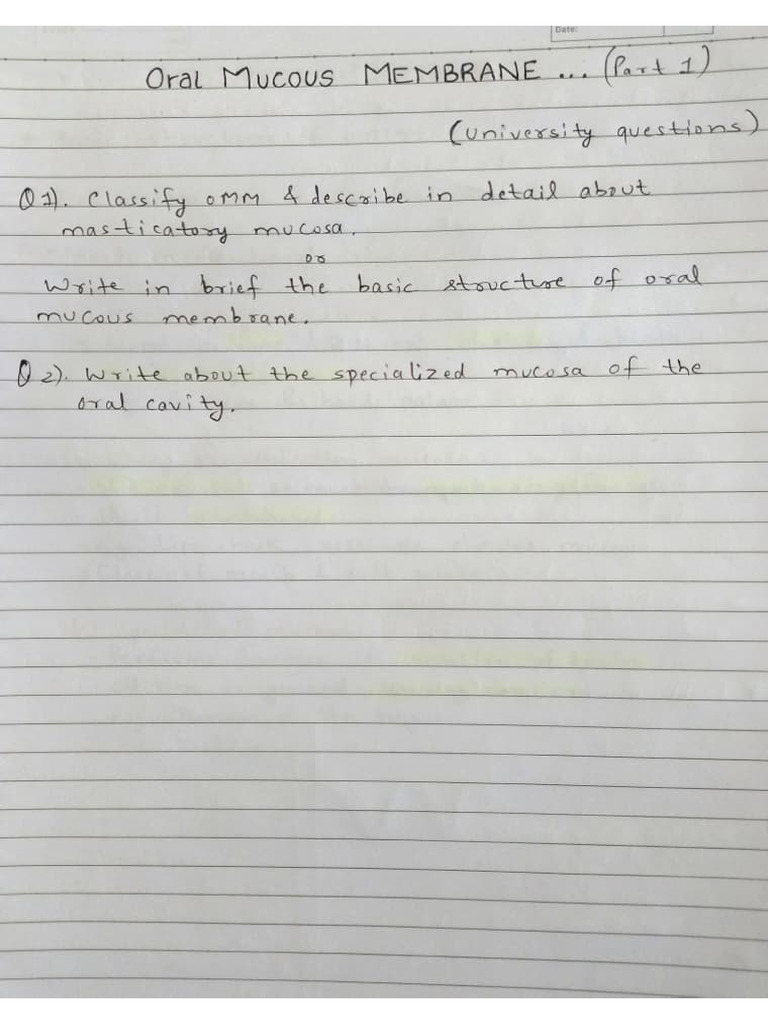 Date:
Oral Mucous MEMBRANE ... (Part 1)
(University questions)
Q 1). Classify OMM & describe in detail about
masticatory mucosa.
or
Write in brief the basic structure of oral
mucous membrane.
Q 2). Write about the specialized mucosa of the
oral cavity.